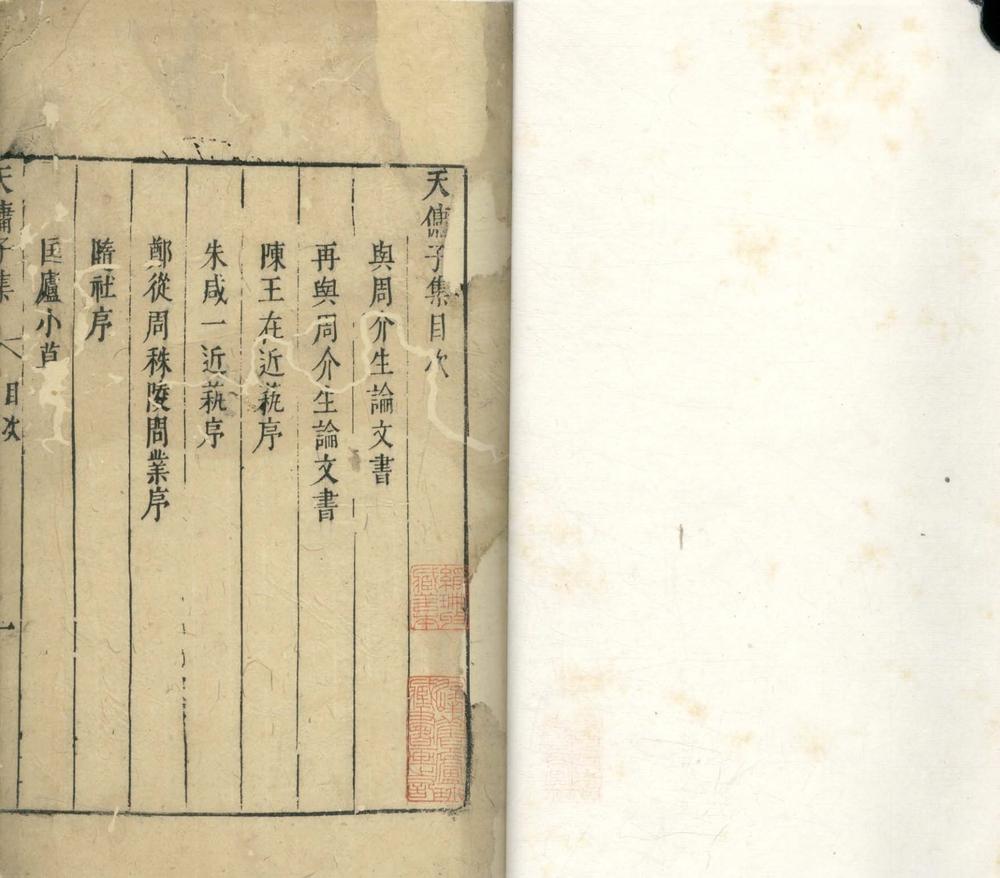 天傭子集目次
與周介生論文書
再與周介生論文書
陳王在近蓺序
朱咸一近蓺序
鄭從周秣陵問業序
隨社序
匡廬小草
天傭子集 目次 一